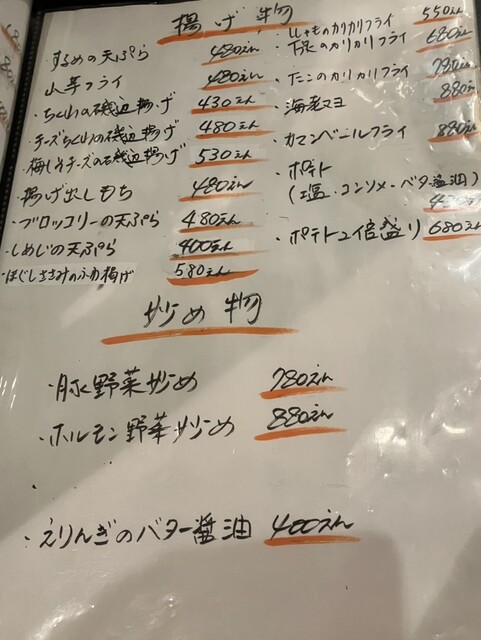 揚げ物
・するめの天ぷら 480えん
・山芋フライ 480えん
・ちくわの磯辺揚げ 430えん
・チーズちくわの磯辺揚げ 480えん
・梅しそチーズの磯辺揚げ 530えん
・揚げ出しもち 480えん
・ブロッコリーの天ぷら 480えん
・しめじの天ぷら 400えん
・ほぐしささみのふわ揚げ 580えん
・ししゃものカリカリフライ 550えん
のカリカリフライ 680えん
・たこのカリカリフライ 780えん
・海老マヨ 880えん
・カマンベールフライ 880えん
・ポテト
(塩・コンソメ・バター醤油)
・ポテト2倍盛り 680えん
炒め物
・豚野菜炒め 780えん
・ホルモン野菜炒め 880えん
・えりんぎのバター醤油 400えん